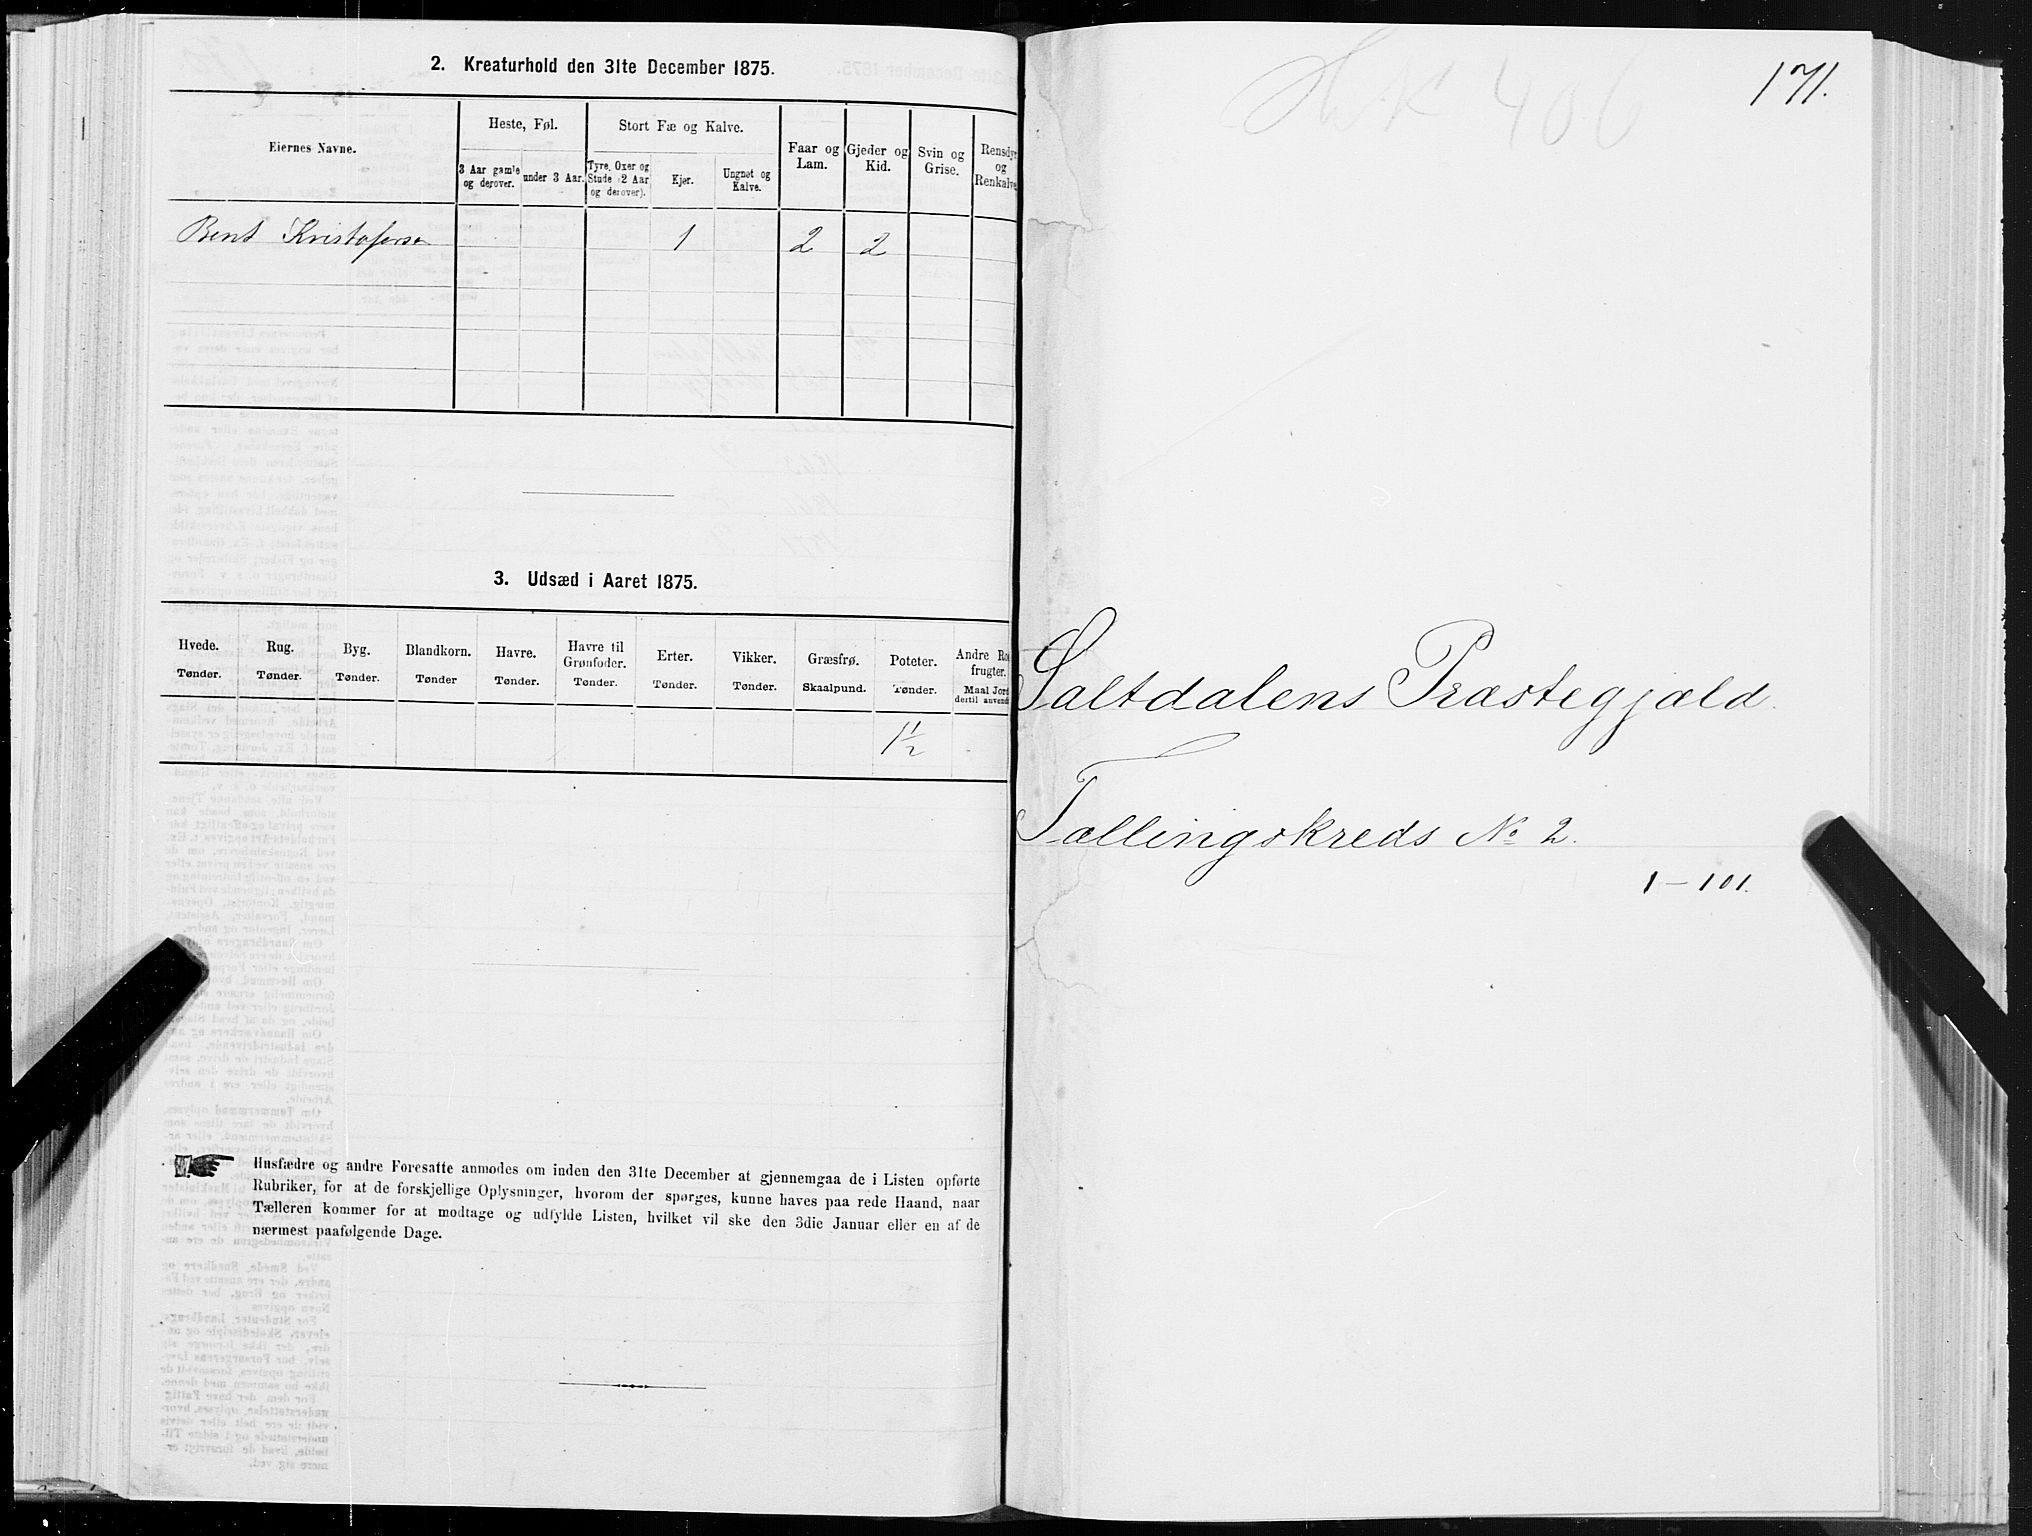 2. Kreaturhold den 31te December 1875.
Eiernes Navne.
Heste, Føl.
Stort Fæ og Kalve.
Faar og Lam.
Gjeder og Kid.
Svin og Grise.
Rensdyr og Renkalve
3 Aar gamle og derover.
under 3 Aar.
Tyre, Oxer og Stude (2 Aar og derover).
Kjør.
Ungnøt og Kalve.
Bent Kristofersen 1 2 2
3. Udsæd i Aaret 1875.
Hvede. Rug. Byg. Blandkorn. Havre. Havre til Grønfoder. Erter. Vikker. Græsfrø. Poteter. Andre Rodfrugter.
Tønder. Tønder. Tønder. Tønder Tønder. Tønder. Tønder. Tønder. Skaalpund. Tønder. Maal Jord dertil anvendt
1 1/2
Husfædre og andre Foresatte anmodes om inden den 31te December at gjennemgaa de i Listen opførte
Rubriker, for at de forskjellige Oplysninger, hvorom der spørges, kunne haves paa rede Haand, naar
Tælleren kommer for at modtage og udfylde Listen, hvilket vil ske den 3die Januar eller en af de
nærmest paafølgende Dage.
171.
406
Saltdalens Præstegjæld.
Tællingskreds No 2.
1-101.